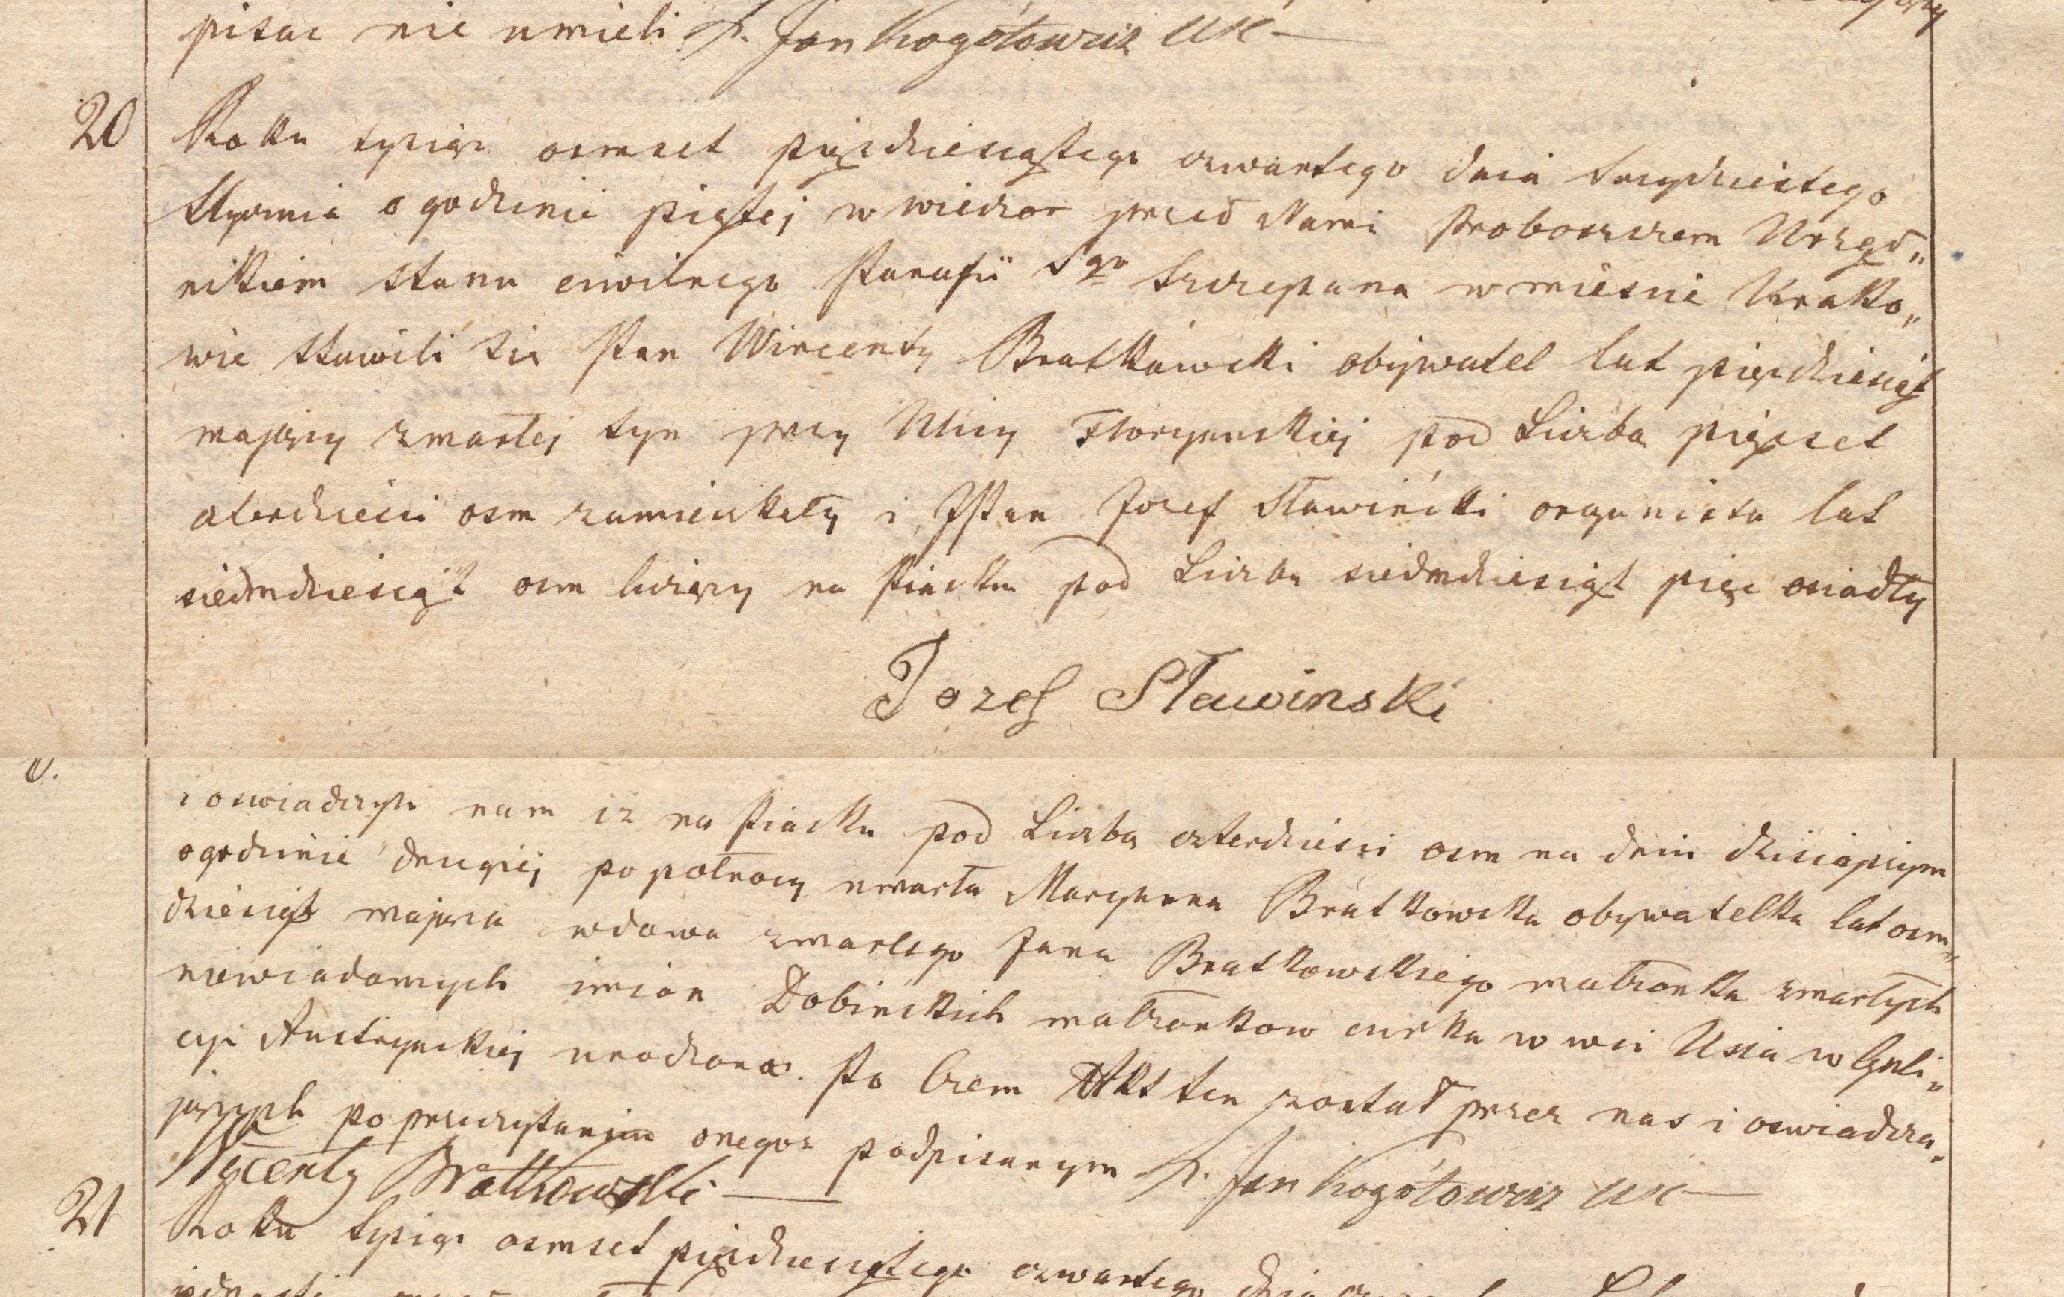 pisac nie umieli X. Jan Rogótowicz USC
20 Roku tysiąc osmset pięcdziesiątego czwartego dnia trzydziestego
Stycznia o godzinie piątej w wieczor przed Nami Proboszczem Urzęd„
nikiem Stanu ciwilnego Parafii Sgo Szczepana w miescie Krako„
wie stawili sie Pan Wincenty Bratkowski obywatel lat pięcdziesiąt
mający zmarłej syn przy Ulicy Floryanskiej pod Liczba pięcset
czterdziesci osm zamieszkały i JPan Jozef Sławinski organista lat
siedmdziesiąt osm liczący na Piasku pod Liczba siedmdziesiąt pięc osiadły
Jozef Sławinski
i oswiadczyli nam iz na Piasku pod Liczbą czterdziesci osm na dniu dzisiejszym
o godzinie drugiej po połnocy umarła Maryanna Bratkowska obywatelka lat osm„
dziesiąt mająca wdowa zmarłego Jana Bratkowskiego małżonka zmarłych
niewiadomych imion Dobinskich małżonkow curka w wsi Uscia w Gali„
cyi Austryackiej urodzona. Po Czem Akt ten został przez nas i oswiadcza„
jących po przeczytaniu onegoz podpisanym X. Jan Rogótowicz USC
Wycenty Bratkowski
21 Roku tysiąc osmset pięcdziesiątego czwartego dnia